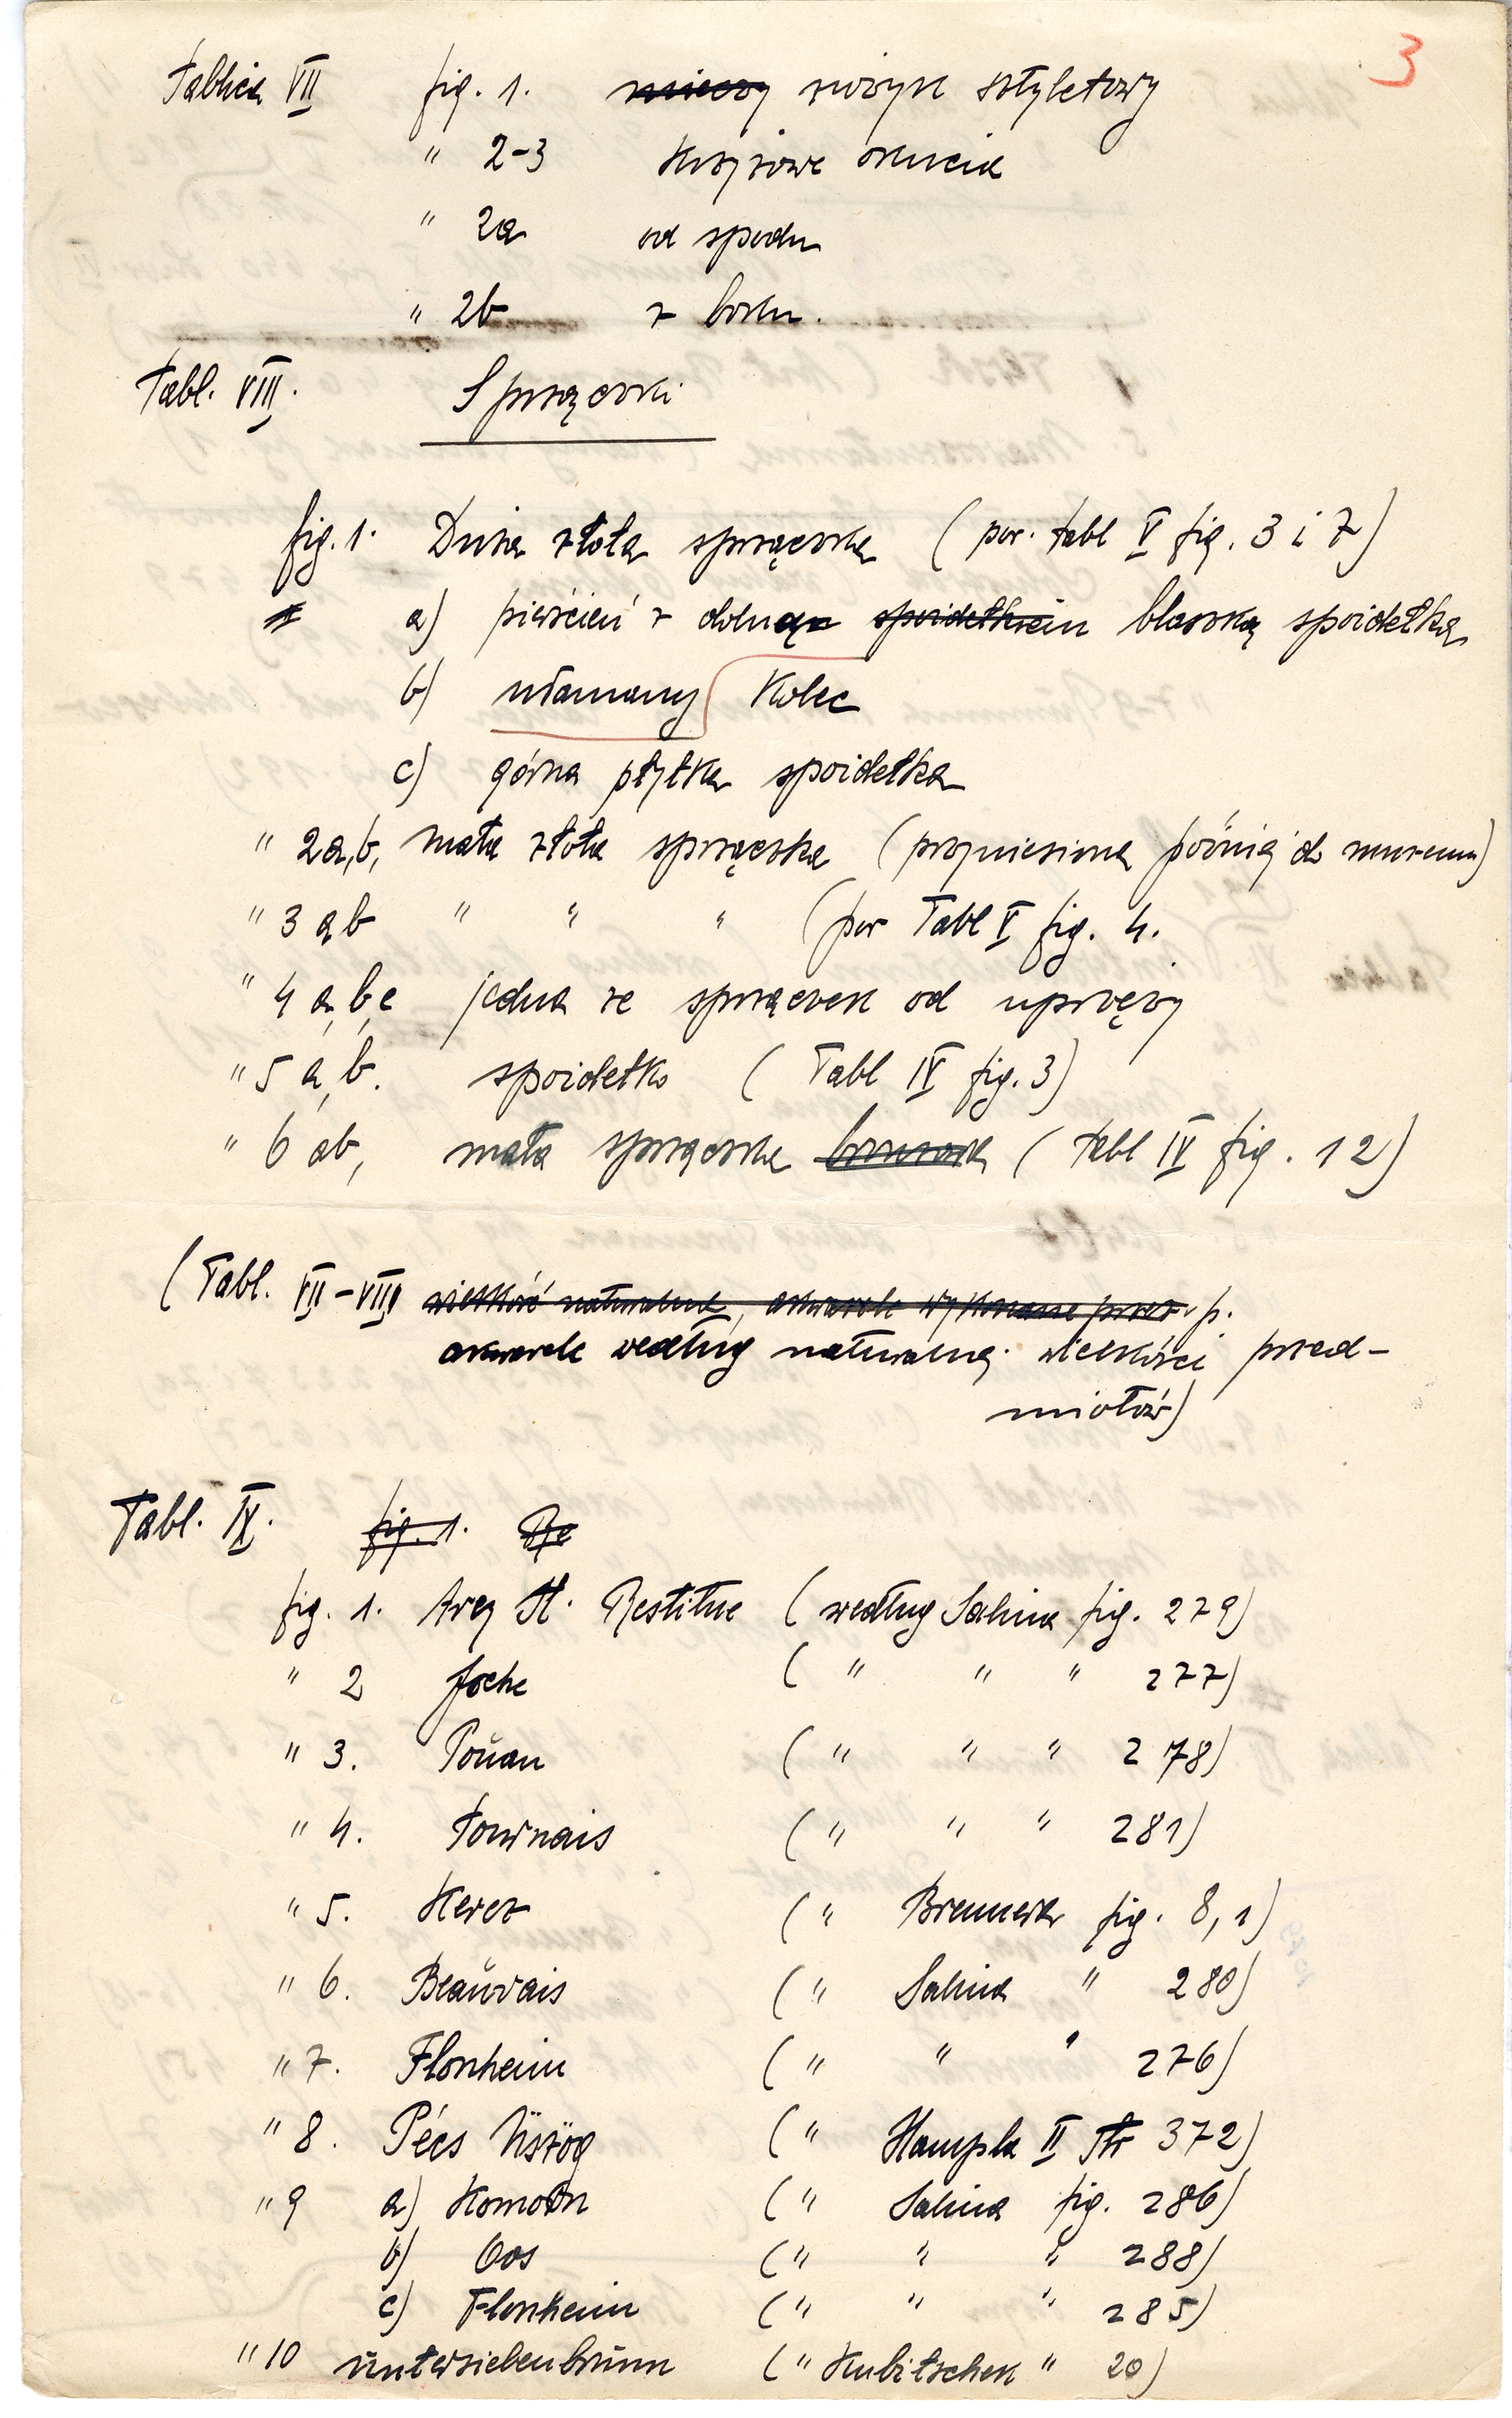 3
Tablica VII fig. 1. nożyk sztyletowy
" 2-3 Krzyżowe okucia
" 2a od spodu
" 2b z boku.
Tabl. VIII. Sprzączki
fig. 1. Duża złota sprzączka (por. tabl V fig. 3 i 7)
a) pierścień z dolną spoidełkiem blaszką spoidełka
b) ułamany Kolec
c) górna płytka spoidełka
" 2a,b, mała złota sprzączka (przyniesiona późnij do muzeum)
" 3 ab " " " (por Tabl V fig. 4.
" 4 a,b,c jedna ze sprzączek od uprzęży
" 5 a,b. spoidełko (Tabl IV fig. 3)
" 6 ab, mała sprzączka (tabl IV fig. 12)
(Tabl. VII-VIII wielkość naturalna, akwarele wykonane przez p.
akwarele według naturalnej wielkości przed-
miotów)
Tabl. IX. fig. 1. Re
fig. 1. Arcy St. Restitue (według Salina fig. 279)
" 2 Joche ( " " " 277)
" 3. Poŭan ( " " " 278)
" 4. Tournais ( " " " 281)
" 5. Kercz ( " Brennera fig. 8, 1)
" 6. Beaŭvais ( " Salina " 280)
" 7. Flonheim ( " " " 276)
" 8. Pécs Üszög ( " Hampla II str 372)
" 9 a) Komorn ( " Salina fig. 286)
b) Oos ( " " " 288)
c) Flonheim ( " " " 285)
" 10 Untersiebenbrŭnn ( " Kubitschek " 20)